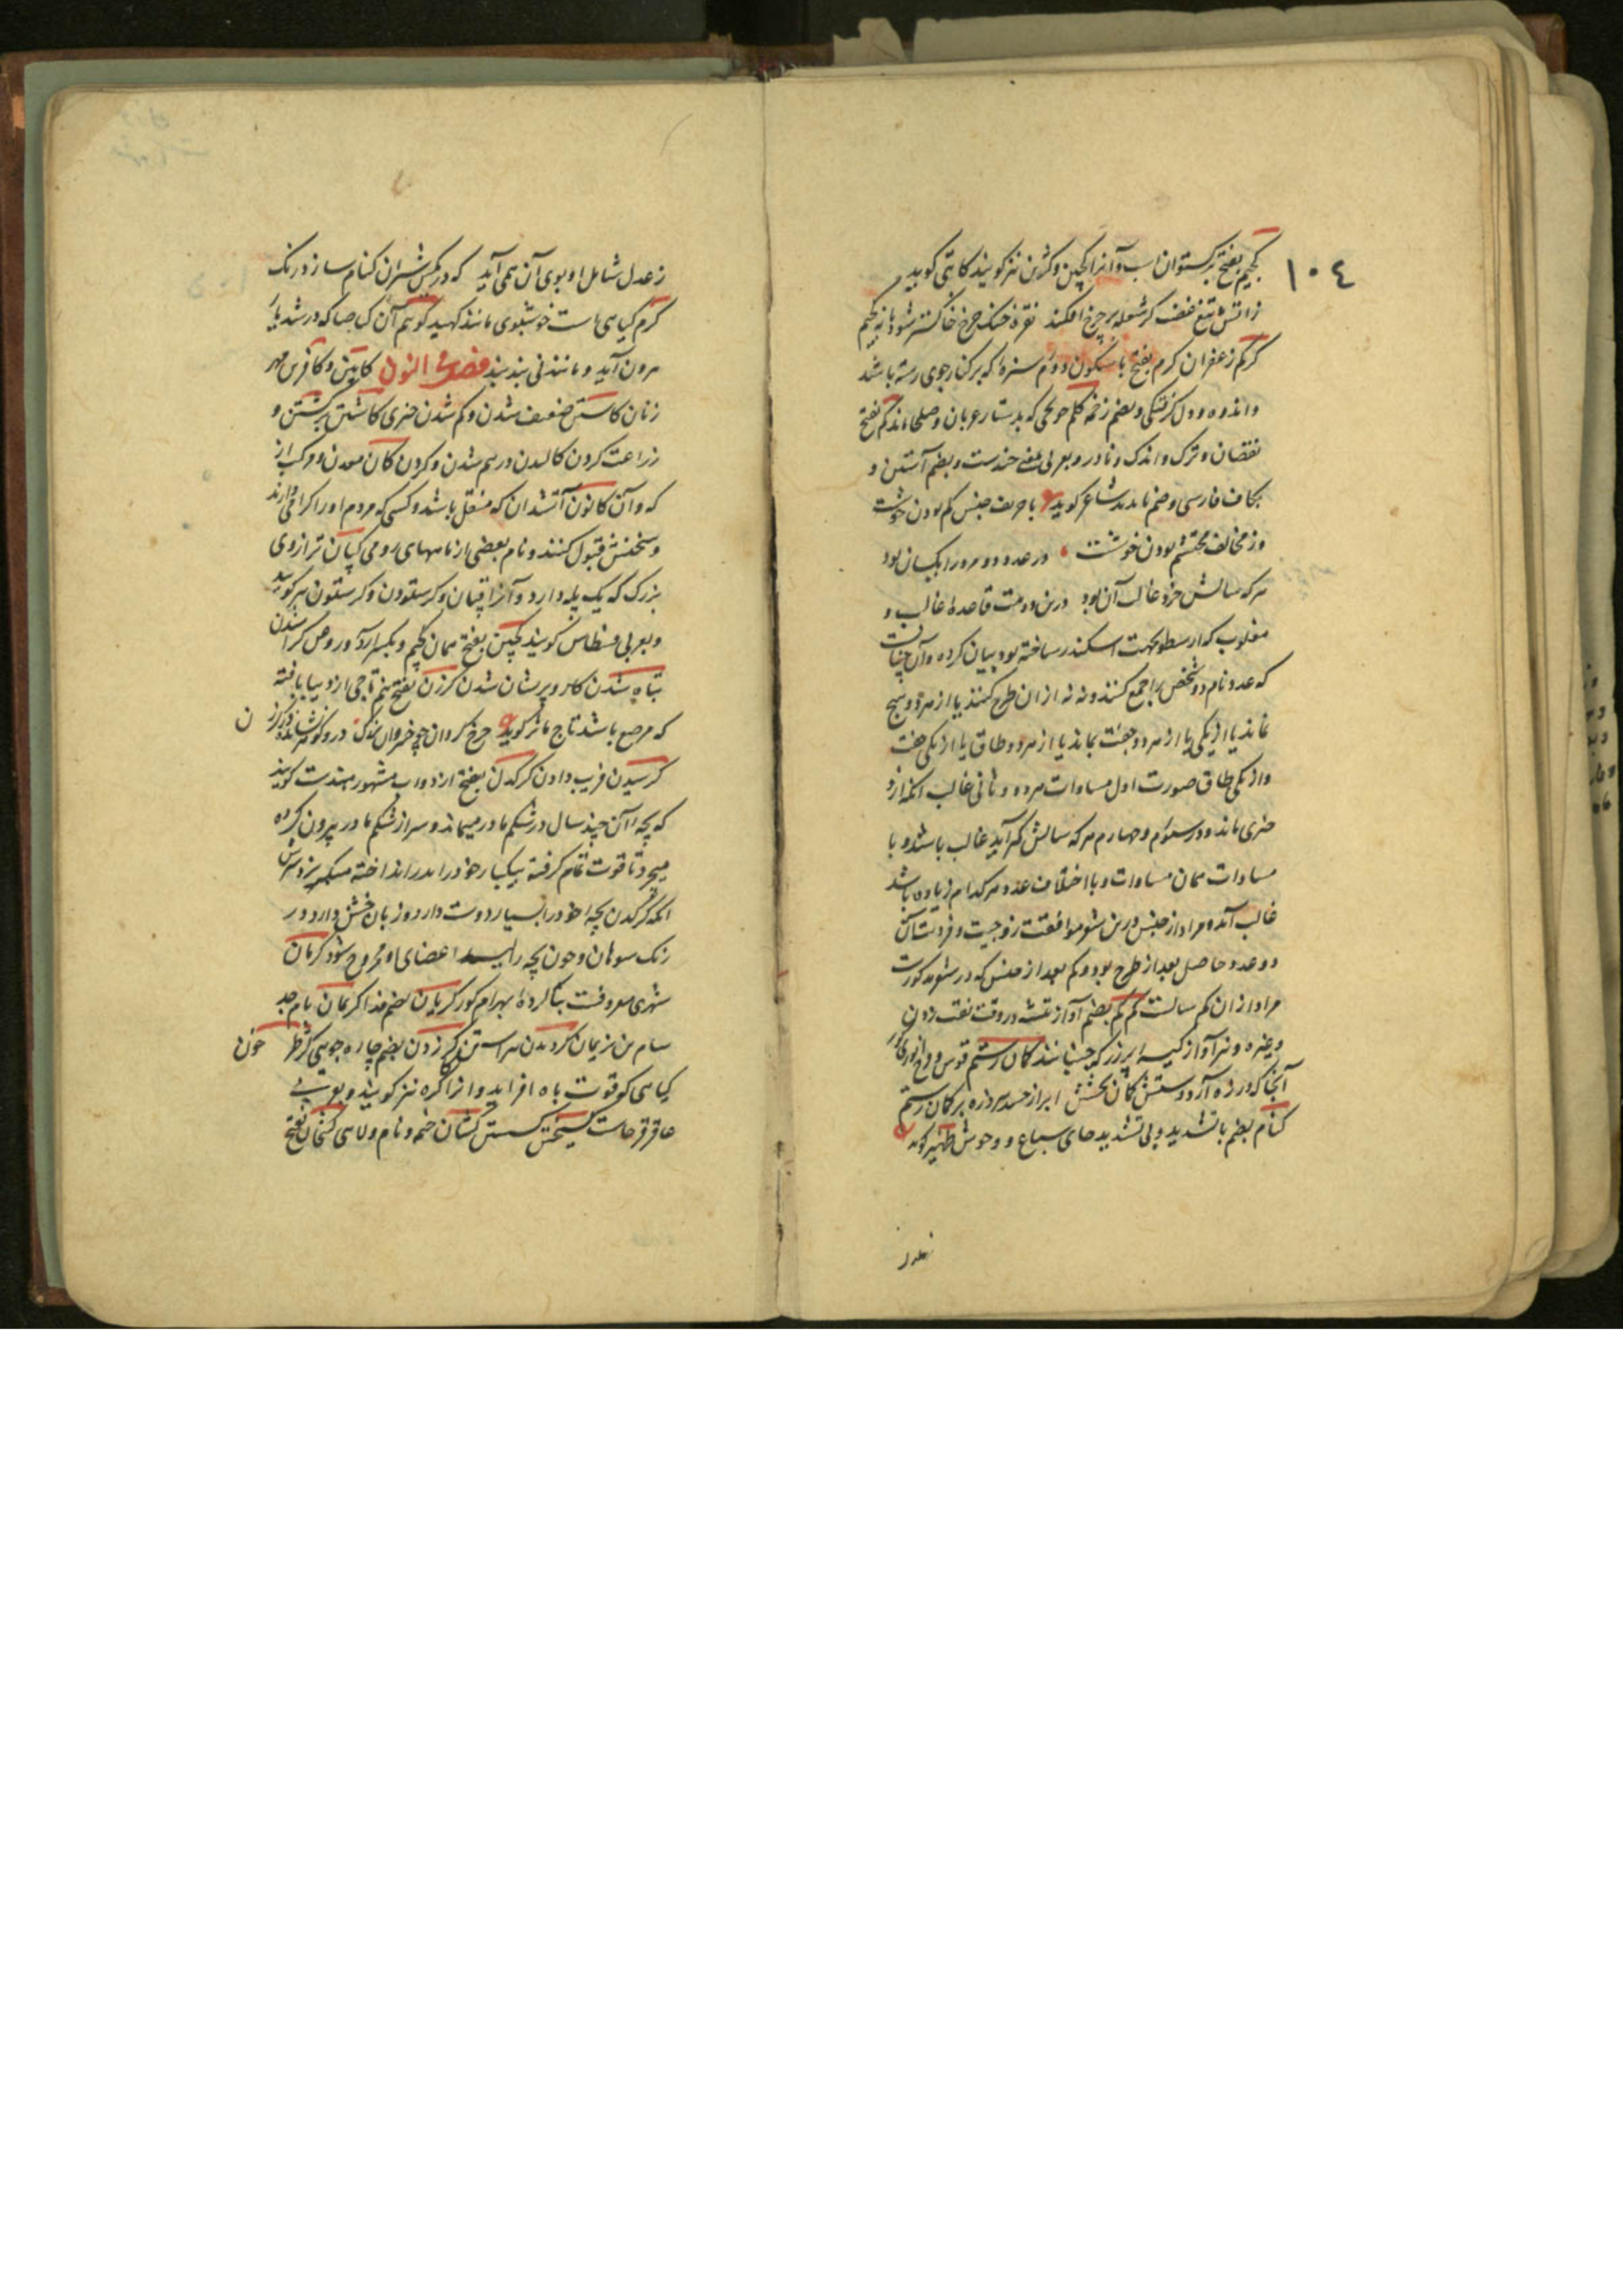 ١٠٤
کجیم بفتح برکستوان اسب و آنرا کجین و کژین نیز کویند کاتبی کوید
ز آتش تیغ غضب کر شعله بر چرخ افکند نقره خنک چرخ خاکستر شود با نه کجیم
کرکم زعفران کرم بفتح با سکون دوم سبزه که بر کنار جوی رسته باشد
و اندوه و دل کرفتکی و بضم زخم کلم که بدستار عربان و صلحا ماند کم بفتح
نقصان و ترک و اندک و نادر و بعربی بمعنی چندست و بضم آستین و
بکاف فارسی و ضم ناپدید شاعر کوید با حریف جنس کم بودن خوشست
وز مخالف محتشم بودن خوشست در عدد دو مرد را یکسان بود
هر که سالش خرد غالب آن بود درین دو بیت قاعده غالب و
مغلوب که ارسطو بجهت اسکندر ساخته بود بیان کرده و آن چنانست
که عدد نام دو شخص را جمع کنند و نه نه از ان طرح کنند یا از هر دو هیچ
نماند یا از یکی یا از هر دو جفت بماند یا از هر دو طاق یا از یکی جفت
و از یکی طاق صورت اول مساوات هر دو و ثانی غالب آنکه ازو
چیزی ماند و در سوم و چهارم هر که سالش کم آید غالب باشد و با
مساوات همان مساوات و با اختلاف عدد هر کدام زیاده باشد
غالب آید و مراد از جنس درین شعر موافقت زوجیت و فردیتان
دو عدد حاصل بعد از طرح بود و کم بعد از جنس که در شعر مذکورست
مراد از ان کم سالست کم کم بضم آواز تیشه در وقت نقب زدن
و غیره و نیز آواز کیسه پرزر که جنبانند کمان رستم قوس و قزح انوری کوید
آنجا که در زه آرد دستش کمان بخشش ابر از حسد ببرد زه بر کمان رستم
کنام بضم با تشدید و بی تشدید جای سباع و وحوش ظهیر کوید
ز عدل
ز عدل شامل او بوی آن همی آید که در کمین شیران کنام سازد رنک
کرم کیاهی است خوشبوی مانند کهبد کوهم آن کیاها که در شدیار
برون آید و مانند نی بند بند فصل النون کابین و کافرین مهر
زنان کاستن ضعیف شدن و کم شدن چیزی کاشتن برکشتن و
زراعت کردن کالیدن درهم شدن و کردن کان معدن و مرکب از
که و آن کانون آتشدان که منقل باشد و کسی که مردم او را کرامی دارند
و سخنش قبول کنند و نام بعضی از ماههای رومی کپان ترازوی
بزرک که یک پله دارد و آنرا قپان و کرستون و کرستون نیز کویند
و بعربی قسطاس کویند کجین بفتح همان کجیم و بکسر
تباه شدن کار و پریشان شدن کرزن بفتح نیم تاجی از دیبا بافته
که مرصع باشد تاج کوید چرخ کردان چو خسروان بزرک در و کوهر نشانده در کرزن
کرسیدن فریب دادن کرکدن بفتح از دواب مشهور هندست کویند
که بچه آن چند سال در شکم مادر میماند و سر از شکم مادر بیرون کرده
میچرد تا قوت تمام کرفته بیکبار خود را بدر انداخته میکریزد
آنکه کرکدن بچه خود را بسیار دوست دارد و زبان خشن دارد در
رنک سوهان و چون بچه را لیسد اعضای او مجروح شود کرمان
شهری معروفست بنا کرده بهرام کور کریان بضم فدا کرمان نام جد
سام بن نریمان کردیدن کرزدن بضم چاره جویی
کیاهی کو قوت باه افزاید و آنرا کره نیز کویند و بعربی
عاقرقرحاست کسیختن کسستن کشان خیمه و نام ولایتی کشخان بفتح